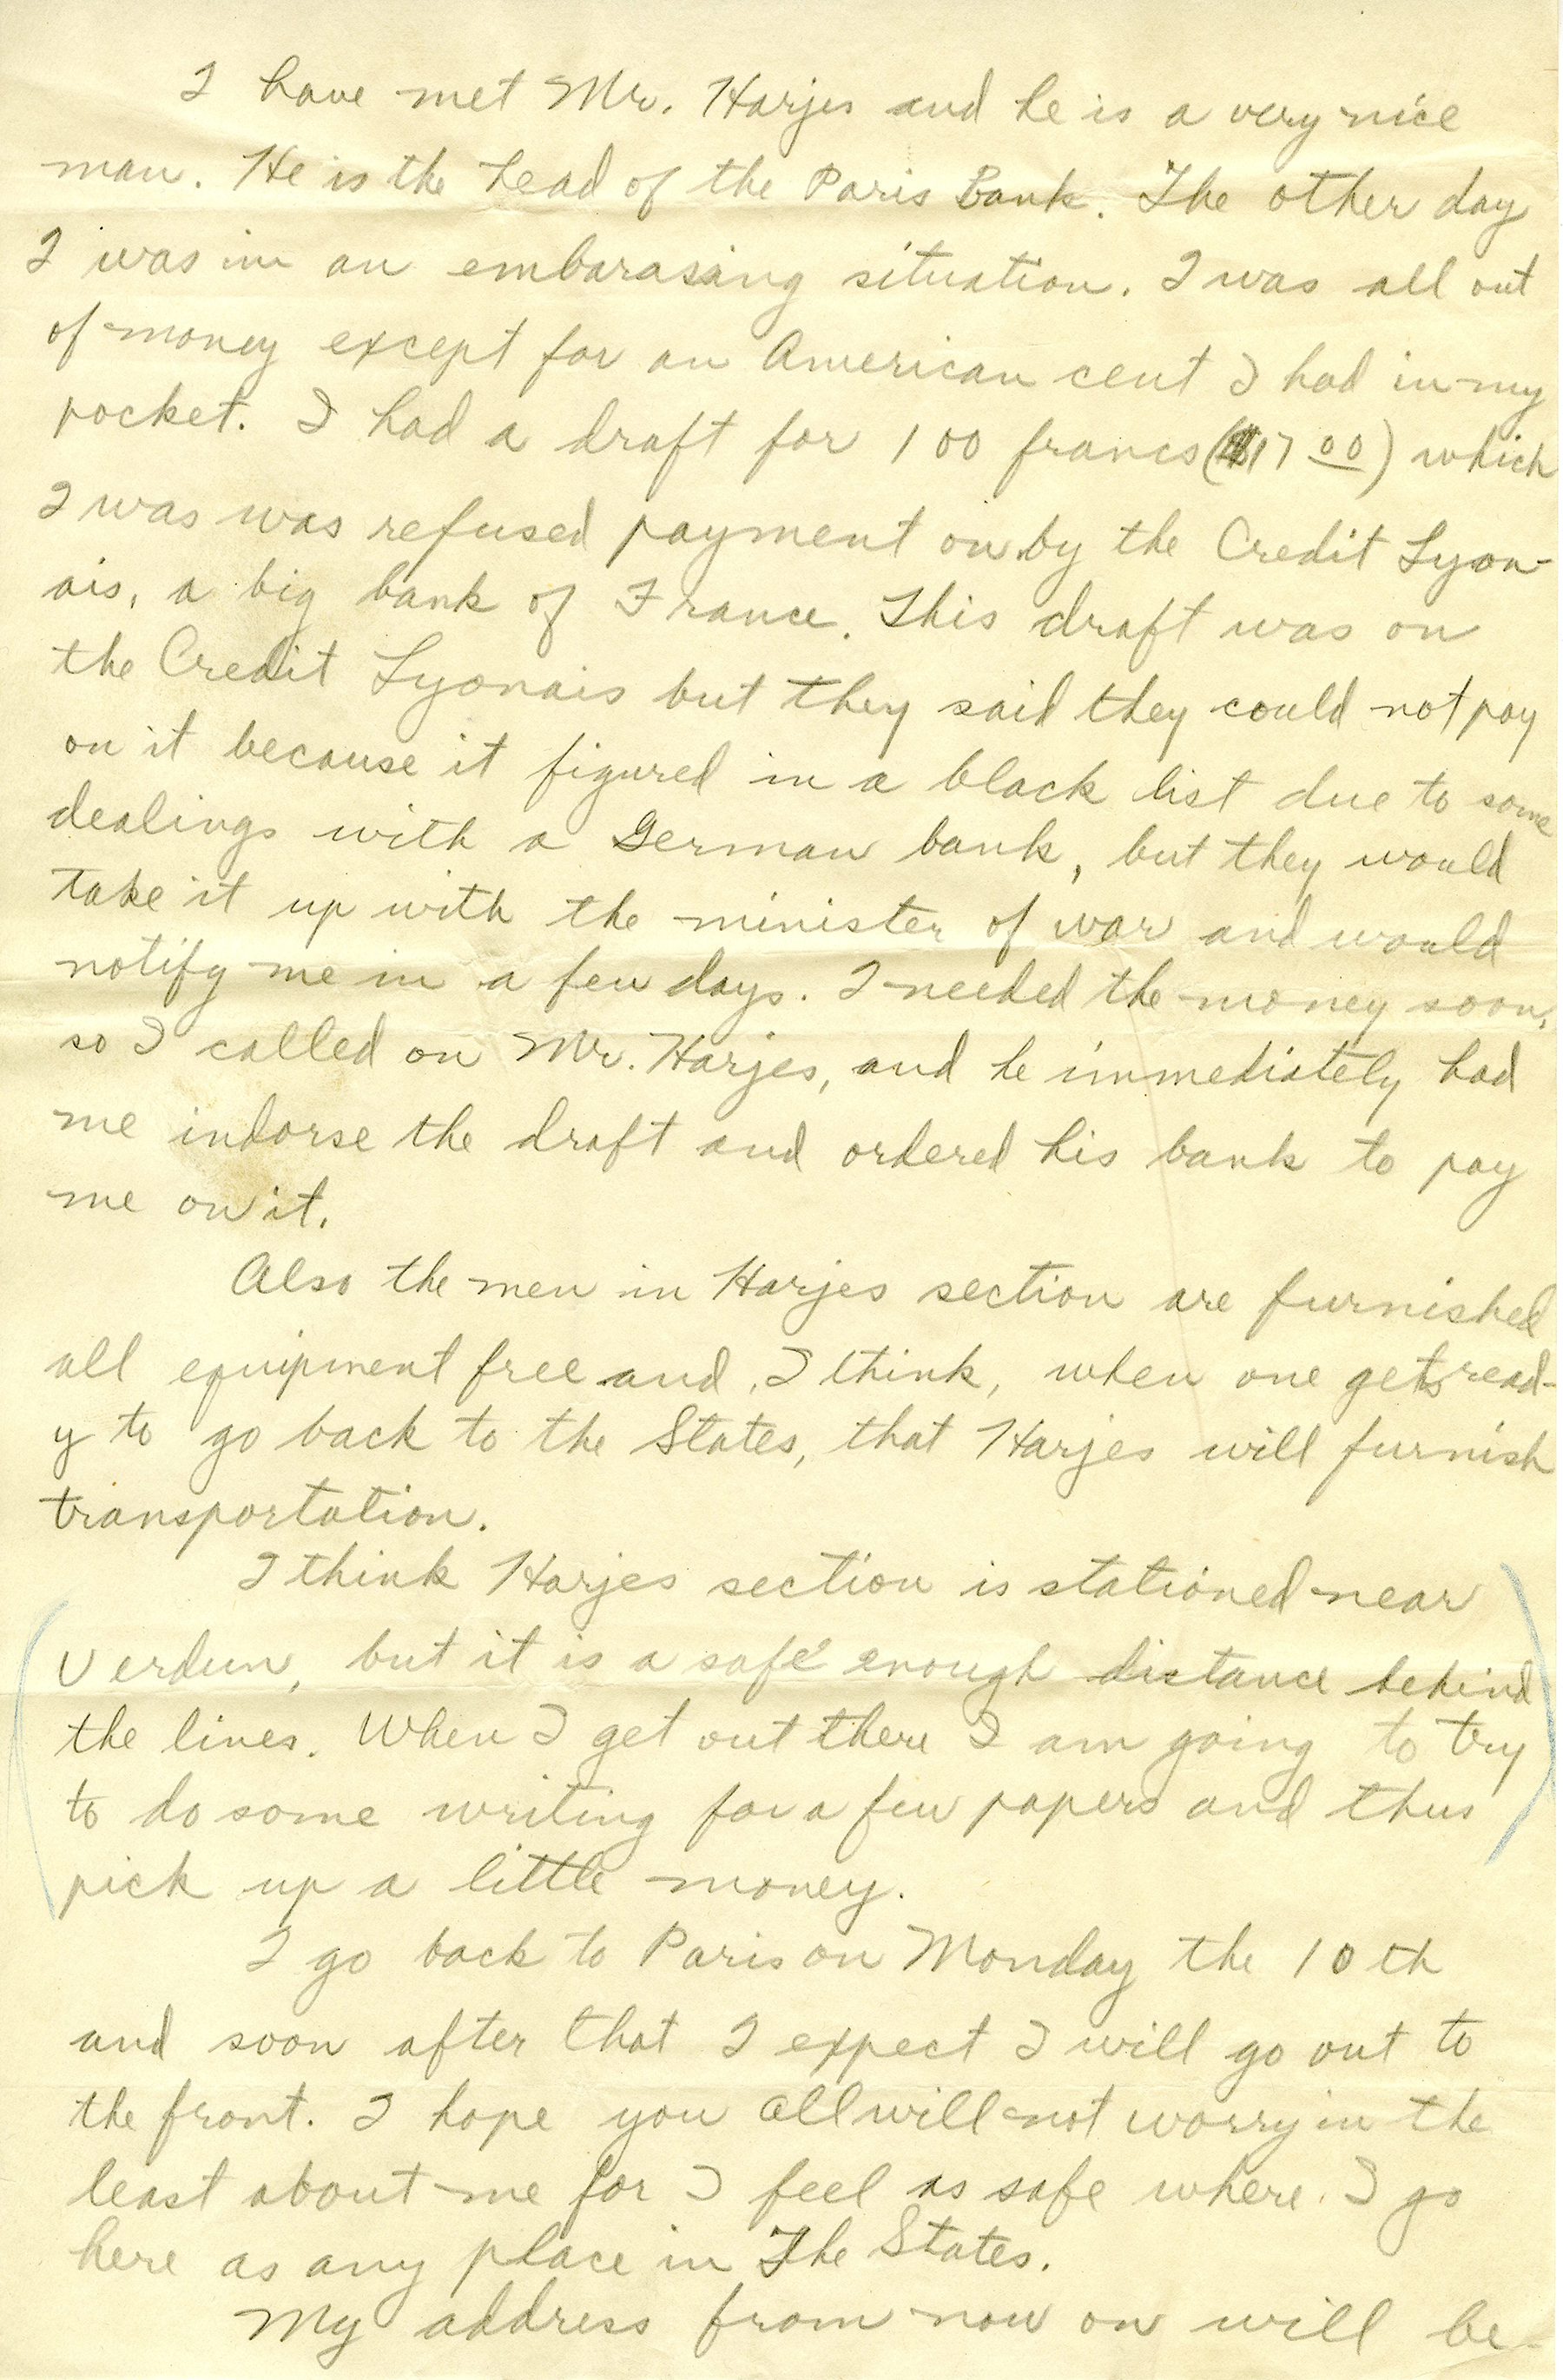 I have met Mr. Harjes and he is a very nice
man. He is the head of the Paris Bank. The other day
I was in an embarasing situation. I was all out
of money except for an American cent I had in my
pocket. I had a draft for 100 francs ($17 00) which
I was was refused payment on by the Credit Lyon-
ais, a big bank of France. This draft was on
the Credit Lyonais but they said they could not pay
on it because it figured in a black list due to some
dealings with a German bank, but they would
take it up with the minister of war and would
notify me in a few days. I needed the money soon,
so I called on Mr. Harjes, and he immediately had
me indorse the draft and ordered his bank to pay
me on it.
Also the men in Harjes section are furnished
all equipment free and, I think, when one gets read-
y to go back to the States, that Harjes will furnish
transportation.
I think Harjes section is stationed near
Verdun, but it is a safe enough distance behind
the lines. When I get out there I am going to try
to do some writing for a few papers and thus
pick up a little money.
I go back to Paris on Monday the 10th
and soon after that I expect I will go out to
the front. I hope you all will not worry in the
least about me for I feel as safe where I go
here as any place in The States.
My address from now on will be-